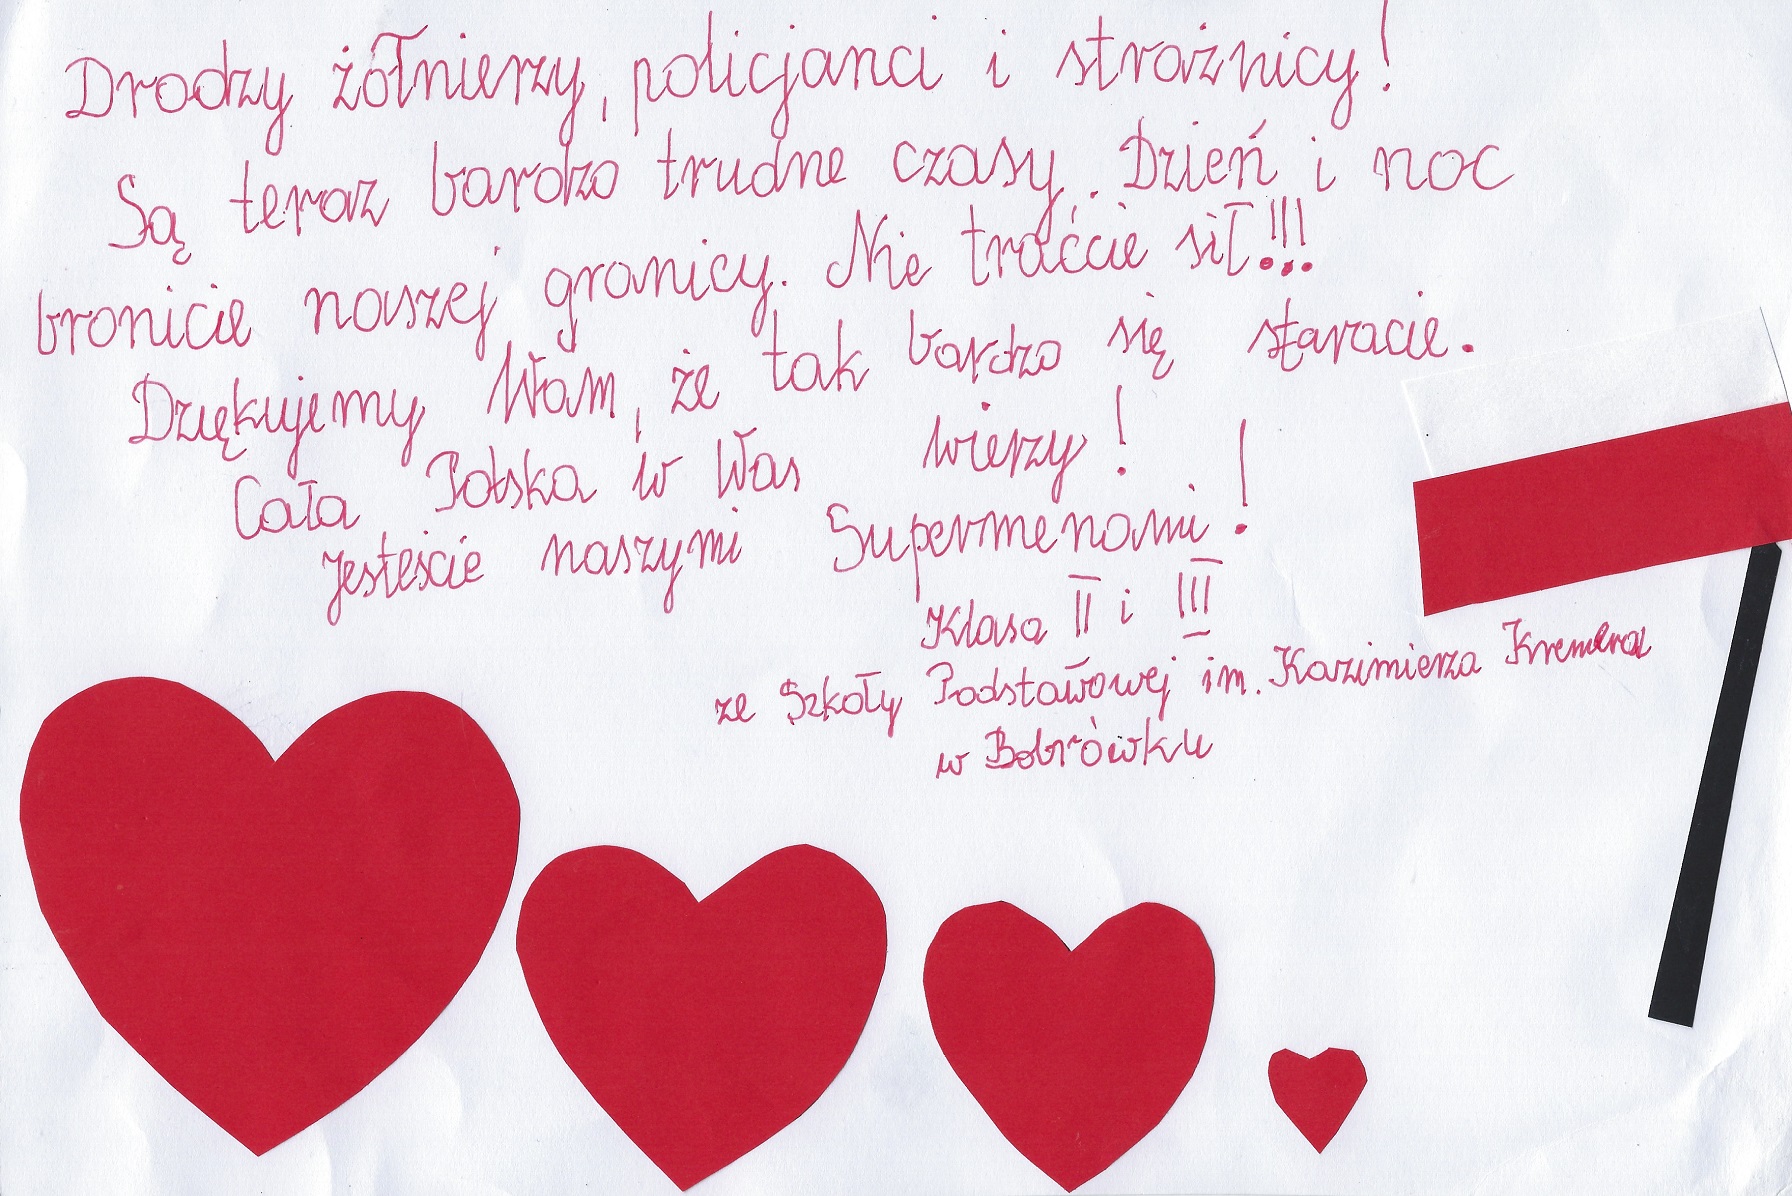 Drodzy żółnierzy, policjanci i strażnicy!
Są teraz bardzo trudne czasy. Dzień i noc
bronicie naszej granicy. Nie traćcie sił!!!
Dziękujemy Wam, że tak bardzo się staracie.
Cała Polska w Was wierzy!
Jesteście naszymi Supermenami!
Klasa II i III
ze Szkoły Podstawowej im. Kazimierza Kremera
w Bobrówku